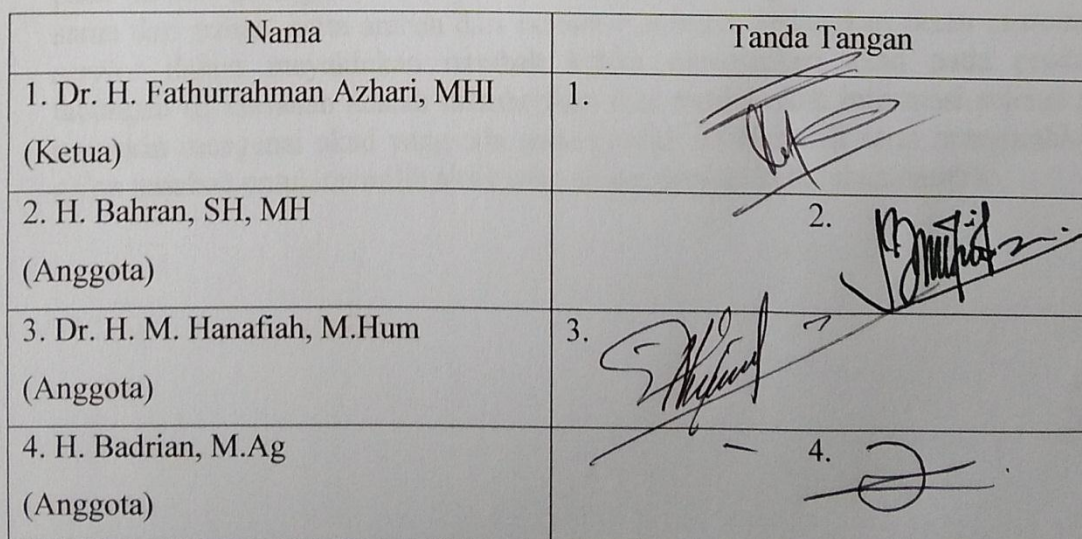 Nama Tanda Tangan
1. Dr. H. Fathurrahman Azhari, MHI 1.
(Ketua)
2. H. Bahran, SH, MH 2.
(Anggota)
3. Dr. H. M. Hanafiah, M.Hum 3.
(Anggota)
4. H. Badrian, M.Ag 4.
(Anggota)